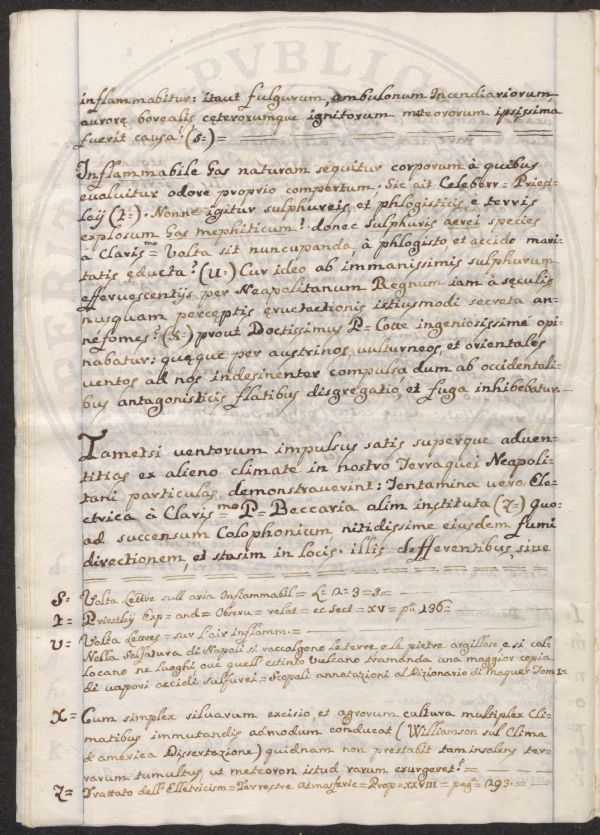 inflammabitur: itaut fulgurum, ambulonum Incendiariorum,
aurorę borealis ceterorumque ignitorum meteororum ipsissima
fuerit causa? (s=) =
Inflammabile Gas naturam sequitur corporum à quibus
evaluitur odore proprio comportum; Sic ait Celeberr= Priest-
leij (t=). Nonne igitur sulphureis, et phlogisticis e terris
explosum Gas mephiticum? donec sulphuris aerei species
a Claris=mo= Volta sit nuncupanda, à phlogisto et accido mari-
tatis ęducta? (U=) Cur ideo ab immanissimis sulphurum
effervescentijs per Neapolitanum Regnum iam à sęculis
nusquam perceptis eructactionis istiusmodi secreta an-
nefomes? (x=) prout Doctissimus P= Cotte ingeniosissimé opi-
nabatur: quęque per austrinos, vulturneos, et orientales
ventos ad nos indesinenter compulsa dum ab occidentali-
bus antagonisticis flatibus disgregatio, et fuga inhibebatur.
Tametsi ventorum impulsus satis superque adven-
titias ex alieno climate in nostro Terraquei Neapoli-
tani particulas demonstraverint: Tentamina vero Ele-
ctrica à Claris=mo= P= Beccaria olim instituta (z=) quo-
ad succensum Colophonium, nitidissime eiusdem fumi
directionem, et stasim in locis illis defferentibus, sive
S= Volta Lettre sull' aria Infiammabil= L= 2= 3= 3=
t= Priestleij Exp= and= Obseru= relat= ec Sect= XV= p= 196=
V= Volta Lettres= sur l'air inflamm.=
Nella Solfatura di Napoli si raccolgono le terre, e le pietre argillose, e si col-
locano ne luoghi ove quell'estinto Vulcano tramanda una maggior copia
di vapori accidi sulfurei= Scopoli annotazioni al Dizionario di Maquer Tom I=
X= Cum simplex siluarum excisio, et agrorum cultura multiplex Cli-
matibus immutandis admodum conducat (Williamson sul Clima
d'america Dissertazione) quidnam non prestabit tam insolens ter-
rarum tumultus, ut meteoron istud rarum exurgeret?=
Z= Trattato dell' Elletricism= Terrestre Atmosferic= Prop= XXVIII= pag= 293.=